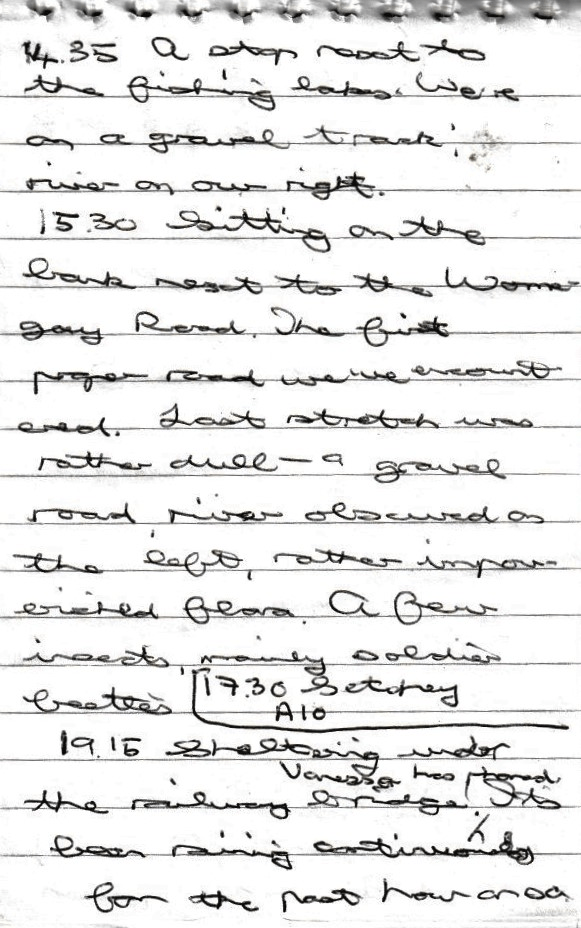 14.35 A stop next to
the fishing lakes. We're
on a gravel track;
river on our right.
15.30 Sitting on the
bank next to the Worme-
gay Road. The first
proper road we've encount-
ered. Last stretch was
rather dull — a gravel
road river obscured on
the left, rather impov-
erished flora. A few
insects, mainly soldier
beetles
17.30 Setchey
A10
19.15 Sheltering under
Vanessa has phoned.
the railway bridge. It's
been raining continuously
for the past hour or so